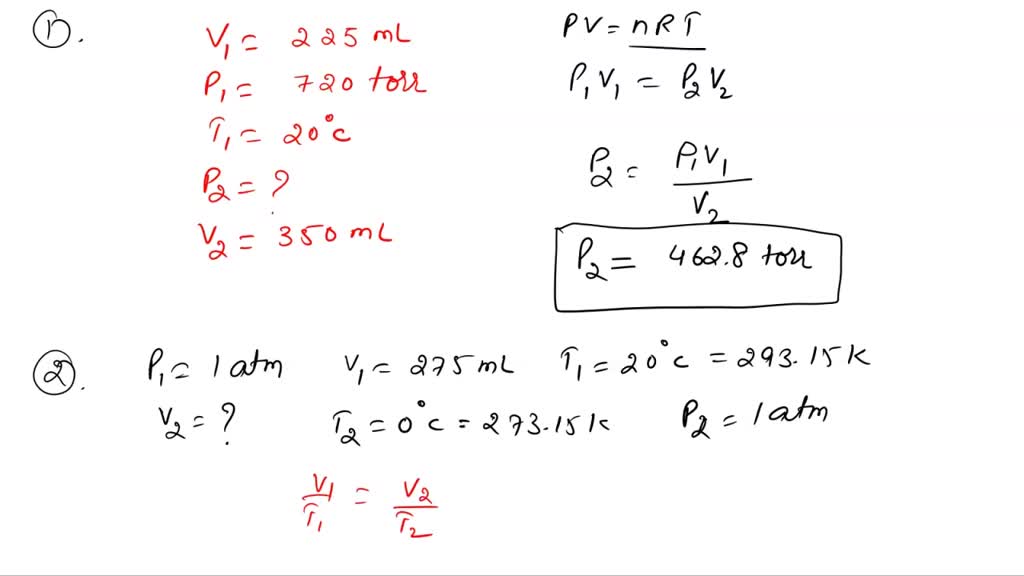 ①.
V₁ = 225 mL
P₁ = 720 torr
T₁ = 20°C
P₂ = ?
V₂ = 350 mL
PV = nRT
P₁V₁ = P₂V₂
P₂ = P₁V₁ / V₂
P₂ = 462.8 torr
②.
P₁ = 1 atm V₁ = 275 mL T₁ = 20°C = 293.15 K
V₂ = ? T₂ = 0°C = 273.15 K P₂ = 1 atm
V₁/T₁ = V₂/T₂